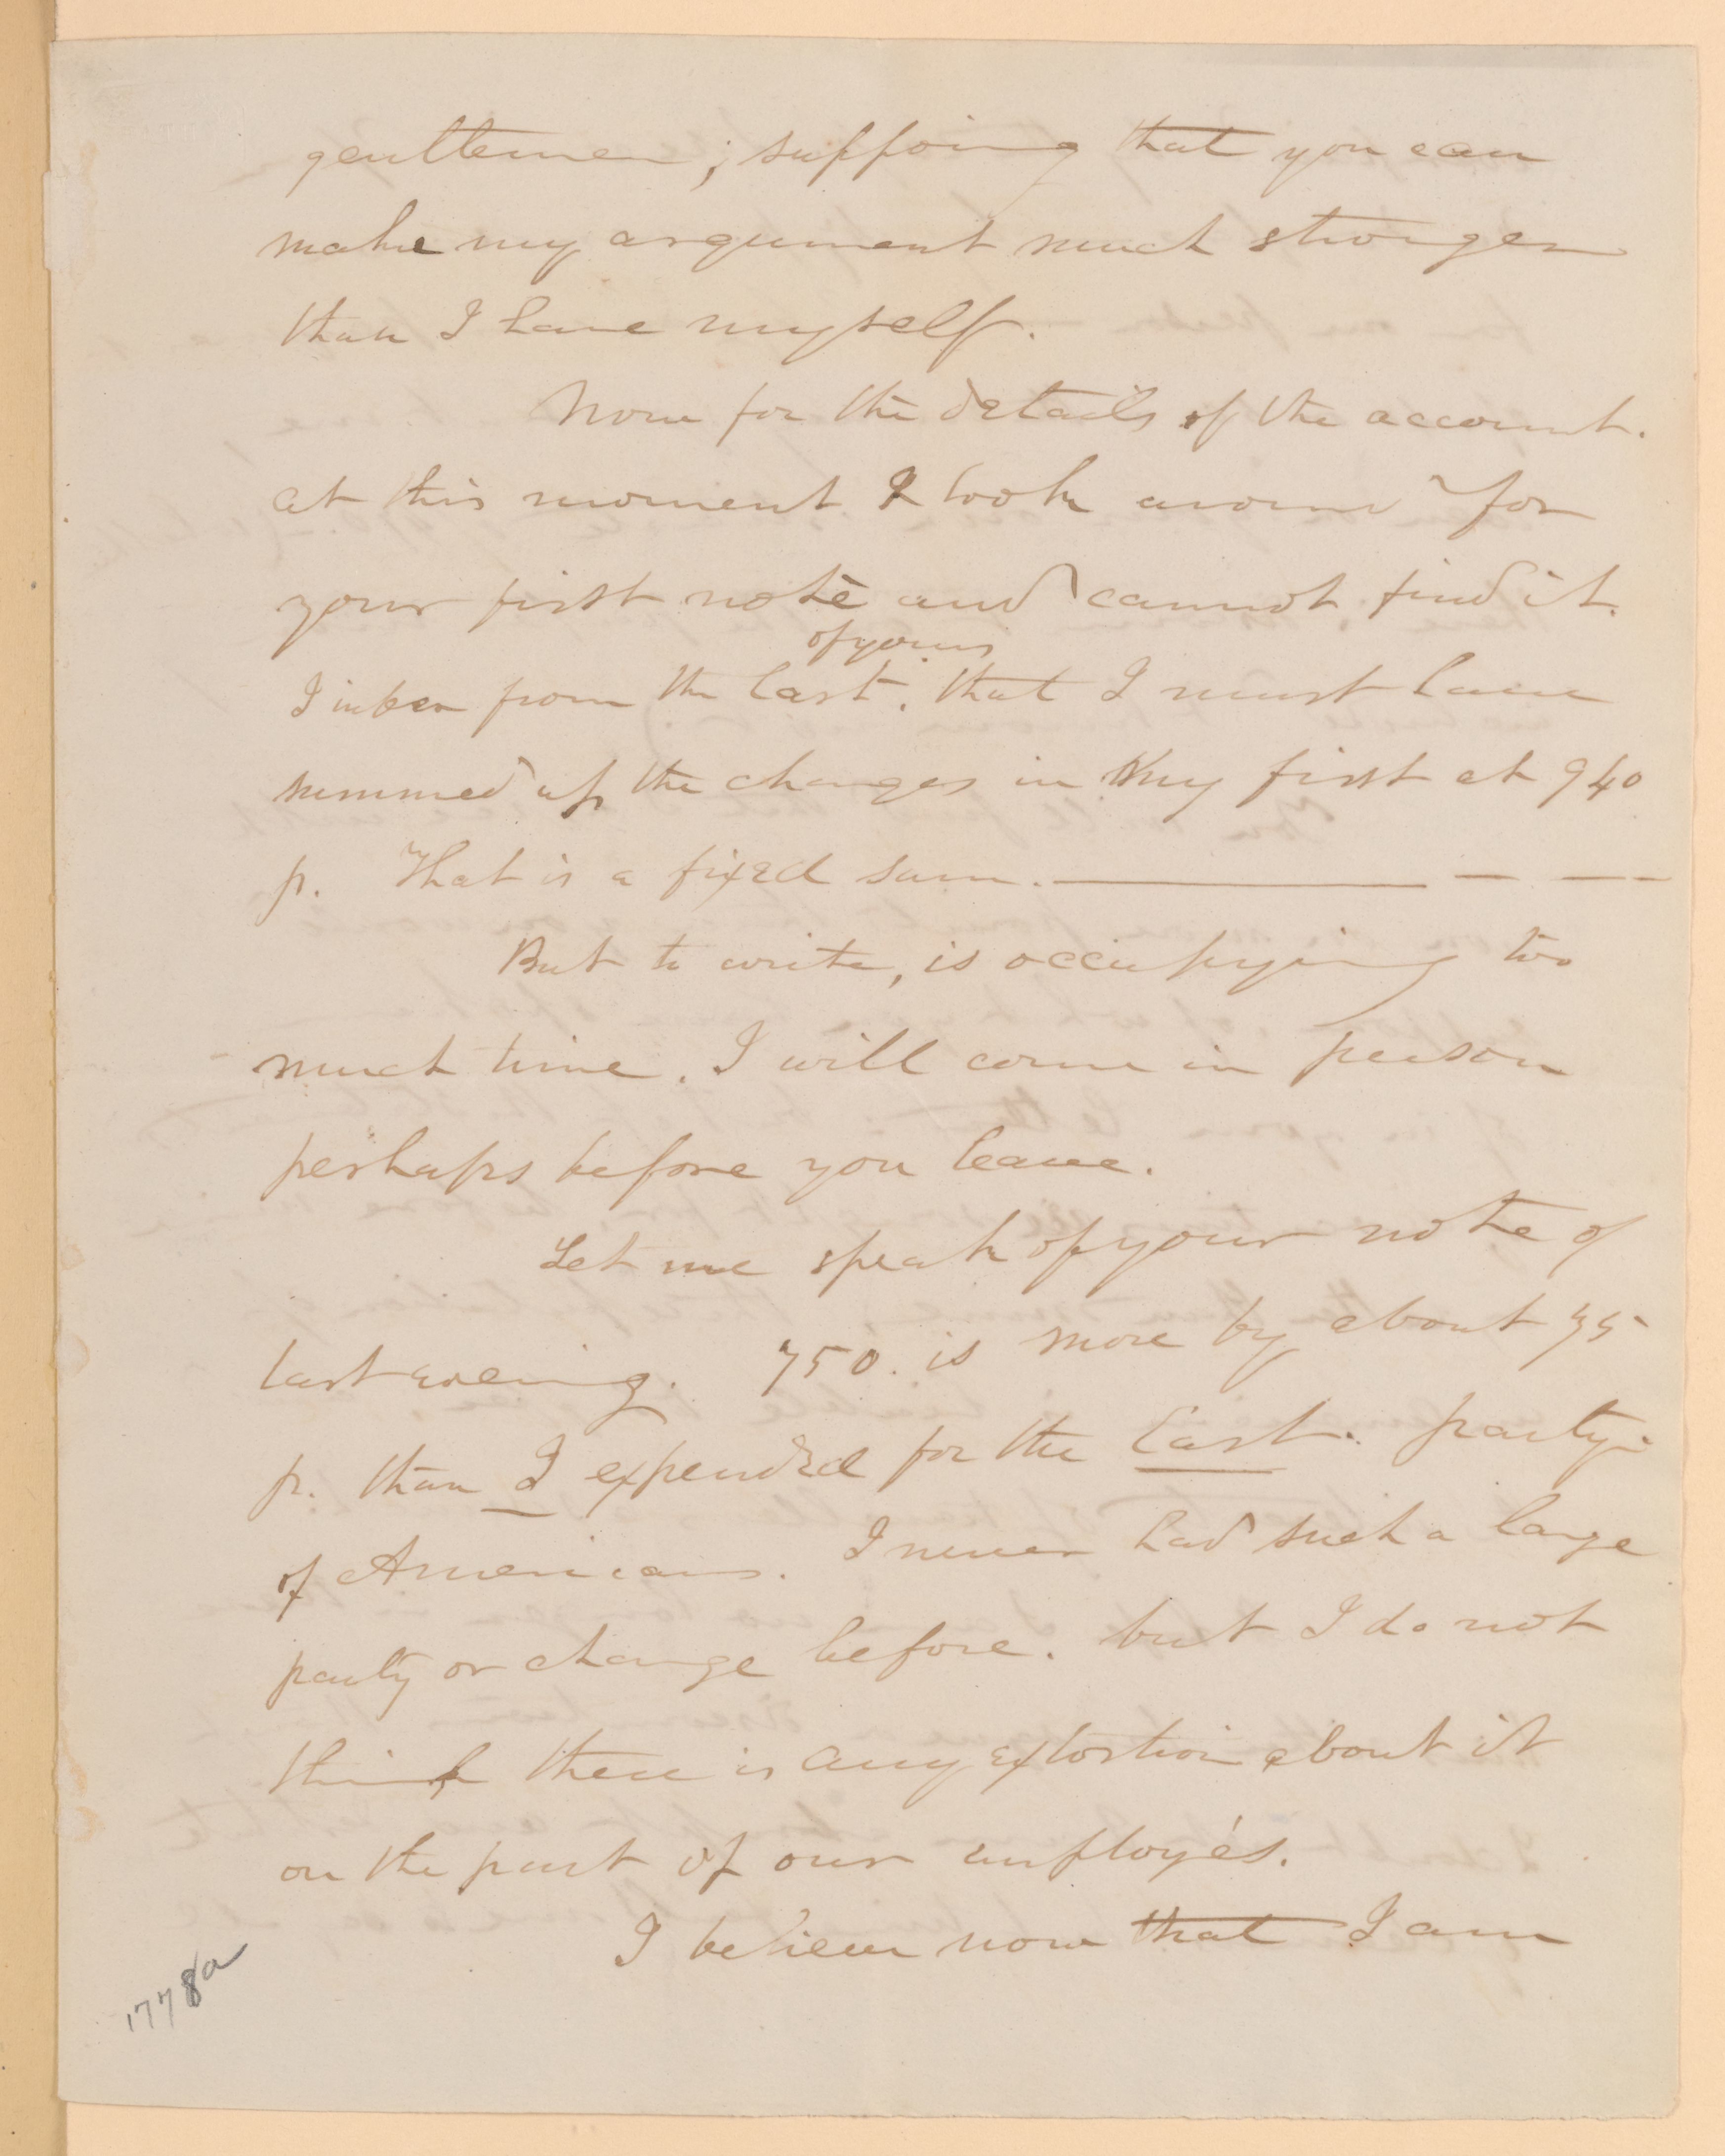 gentlemen; supposing that you can
make my argument much stronger
than I have myself.
Now for the details of the account.
At this moment I look around for
your first note and cannot find it.
of yours
I infer from the last. that I must have
summed up the charges in my first at 940
p. That is a fixed sum. ——— — —
But to write, is occupying too
much time. I will come in person
perhaps before you leave.
Let me speak of your note of
last evening. 750. is more by about
p. than I expended for the last. party.
of Americans. I never had such a large
party or charge before. but I do not
think there is any extortion about it
on the part of our employés.
I believe now that I am
1778a